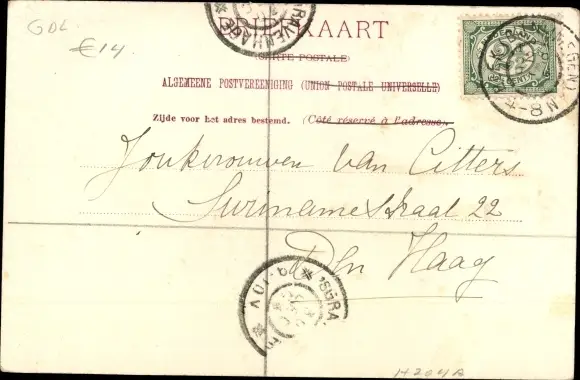 GDL
€14
BRIEFKAART
(CARTE POSTALE)
ALGEMEENE POSTVEREENIGING (UNION POSTALE UNIVERSELLE)
Zijde voor het adres bestemd. (Côté réservé à l'adresse.)
Jonkvrouwen Van Citters
Surinamestraat 22
Den Haag
H204A